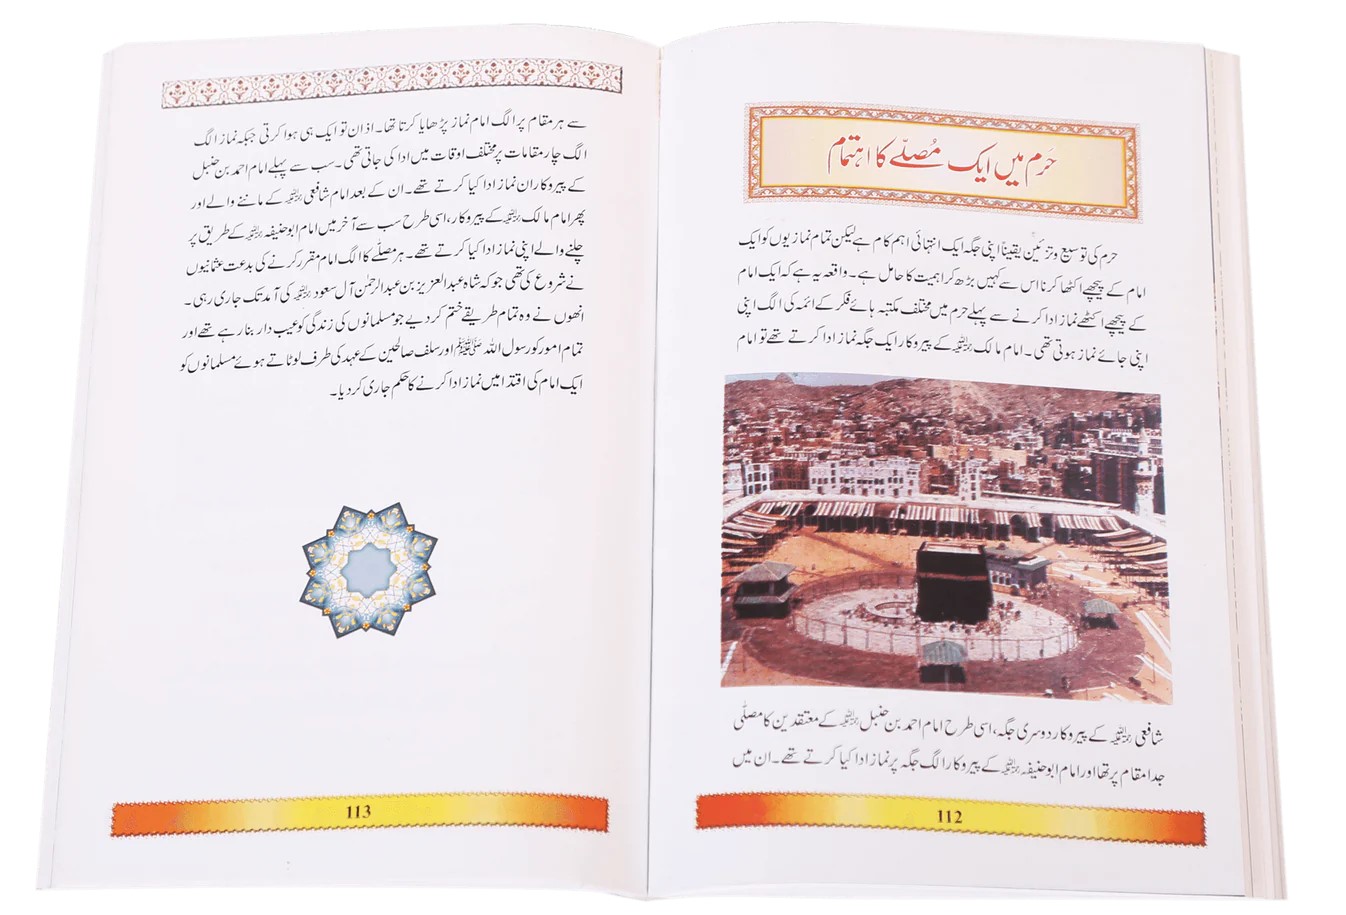 حَرم میں ایک مُصلّے کا اہتمام
حرم کی توسیع و تزئین یقیناً اپنی جگہ ایک انتہائی اہم کام ہے لیکن تمام نمازیوں کو ایک
امام کے پیچھے اکٹھا کرنا اس سے کہیں بڑھ کر اہمیت کا حامل ہے۔ واقعہ یہ ہے کہ ایک امام
کے پیچھے اکٹھے نماز ادا کرنے سے پہلے حرم میں مختلف مکتبہ ہائے فکر کے ائمہ کی الگ اپنی
اپنی جائے نماز ہوتی تھی۔ امام مالک رحمہ اللہ کے پیروکار ایک جگہ نماز ادا کرتے تھے تو امام
شافعی رحمہ اللہ کے پیروکار دوسری جگہ، اسی طرح امام احمد بن حنبل رحمہ اللہ کے معتقدین کا مصلّٰی
جدا مقام پر تھا اور امام ابوحنیفہ رحمہ اللہ کے پیروکار الگ جگہ پر نماز ادا کیا کرتے تھے۔ ان میں
112
سے ہر مقام پر الگ امام نماز پڑھایا کرتا تھا۔ اذان تو ایک ہی ہوا کرتی جبکہ نماز الگ
الگ چار مقامات پر مختلف اوقات میں ادا کی جاتی تھی۔ سب سے پہلے امام احمد بن حنبل
کے پیروکاران نماز ادا کیا کرتے تھے۔ ان کے بعد امام شافعی رحمہ اللہ کے ماننے والے اور
پھر امام مالک رحمہ اللہ کے پیروکار، اسی طرح سب سے آخر میں امام ابوحنیفہ رحمہ اللہ کے طریق پر
چلنے والے اپنی نماز ادا کیا کرتے تھے۔ ہر مصلّے کا الگ امام مقرر کرنے کی بدعت عثمانیوں
نے شروع کی تھی جو کہ شاہ عبدالعزیز بن عبدالرحمٰن آل سعود رحمہ اللہ کی آمد تک جاری رہی۔
انھوں نے وہ تمام طریقے ختم کر دیے جو مسلمانوں کی زندگی کو عیب دار بنا رہے تھے اور
تمام امور کو رسول اللہ ﷺ اور سلف صالحین کے عہد کی طرف لوٹاتے ہوئے مسلمانوں کو
ایک امام کی اقتدا میں نماز ادا کرنے کا حکم جاری کر دیا۔
113